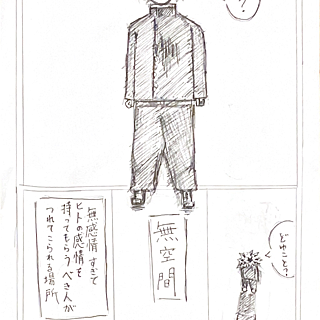 ?
どゆこと?
無空間
無感情すぎて
ヒトの感情を
持ってもらうべき人が
つれてこられる場所